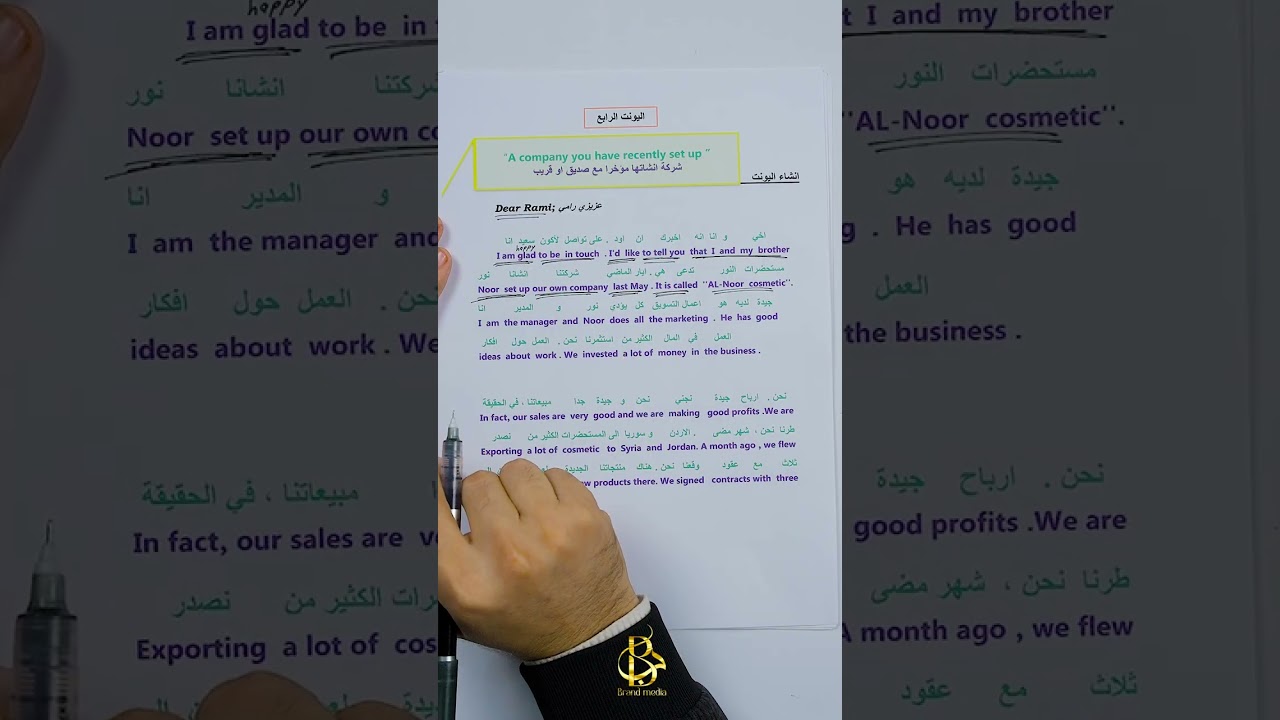 اليونت الرابع
"A company you have recently set up "
شركة انشاتها مؤخرا مع صديق او قريب
انشاء اليونت
Dear Rami; عزيزي رامي
اخي و انا انه اخبرك ان اود . على تواصل لاكون سعيد انا
happy
I am glad to be in touch . I'd like to tell you that I and my brother
مستحضرات النور تدعى هي . ايار الماضي شركتنا انشانا نور
Noor set up our own company last May . It is called "AL-Noor cosmetic".
جيدة لديه هو اعمال التسويق كل يؤدي نور و المدير انا
I am the manager and Noor does all the marketing . He has good
العمل في المال الكثير من استثمرنا نحن . العمل حول افكار
ideas about work . We invested a lot of money in the business .
نحن . ارباح جيدة نجني نحن و جيدة جدا مبيعاتنا ، في الحقيقة
In fact, our sales are very good and we are making good profits .We are
طرنا نحن ، شهر مضى . الاردن و سوريا الى المستحضرات الكثير من نصدر
Exporting a lot of cosmetic to Syria and Jordan. A month ago , we flew
ثلاث مع عقود وقعنا نحن . هناك منتجاتنا الجديدة
products there. We signed contracts with three
B
Brand media